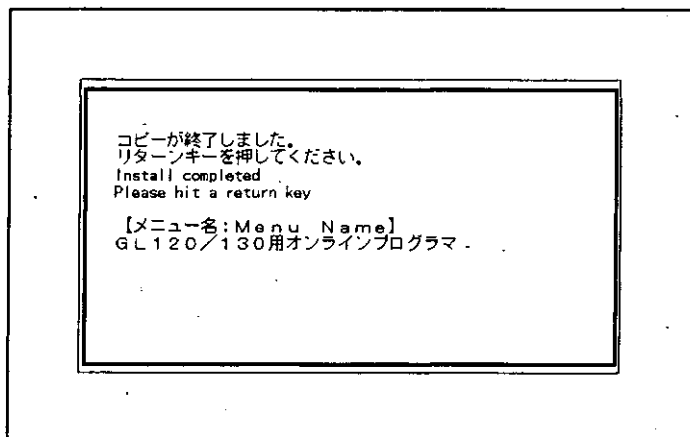 コピーが終了しました。
リターンキーを押してください。
Install completed
Please hit a return key
【メニュー名:Menu Name】
GL120/130用オンラインプログラマ